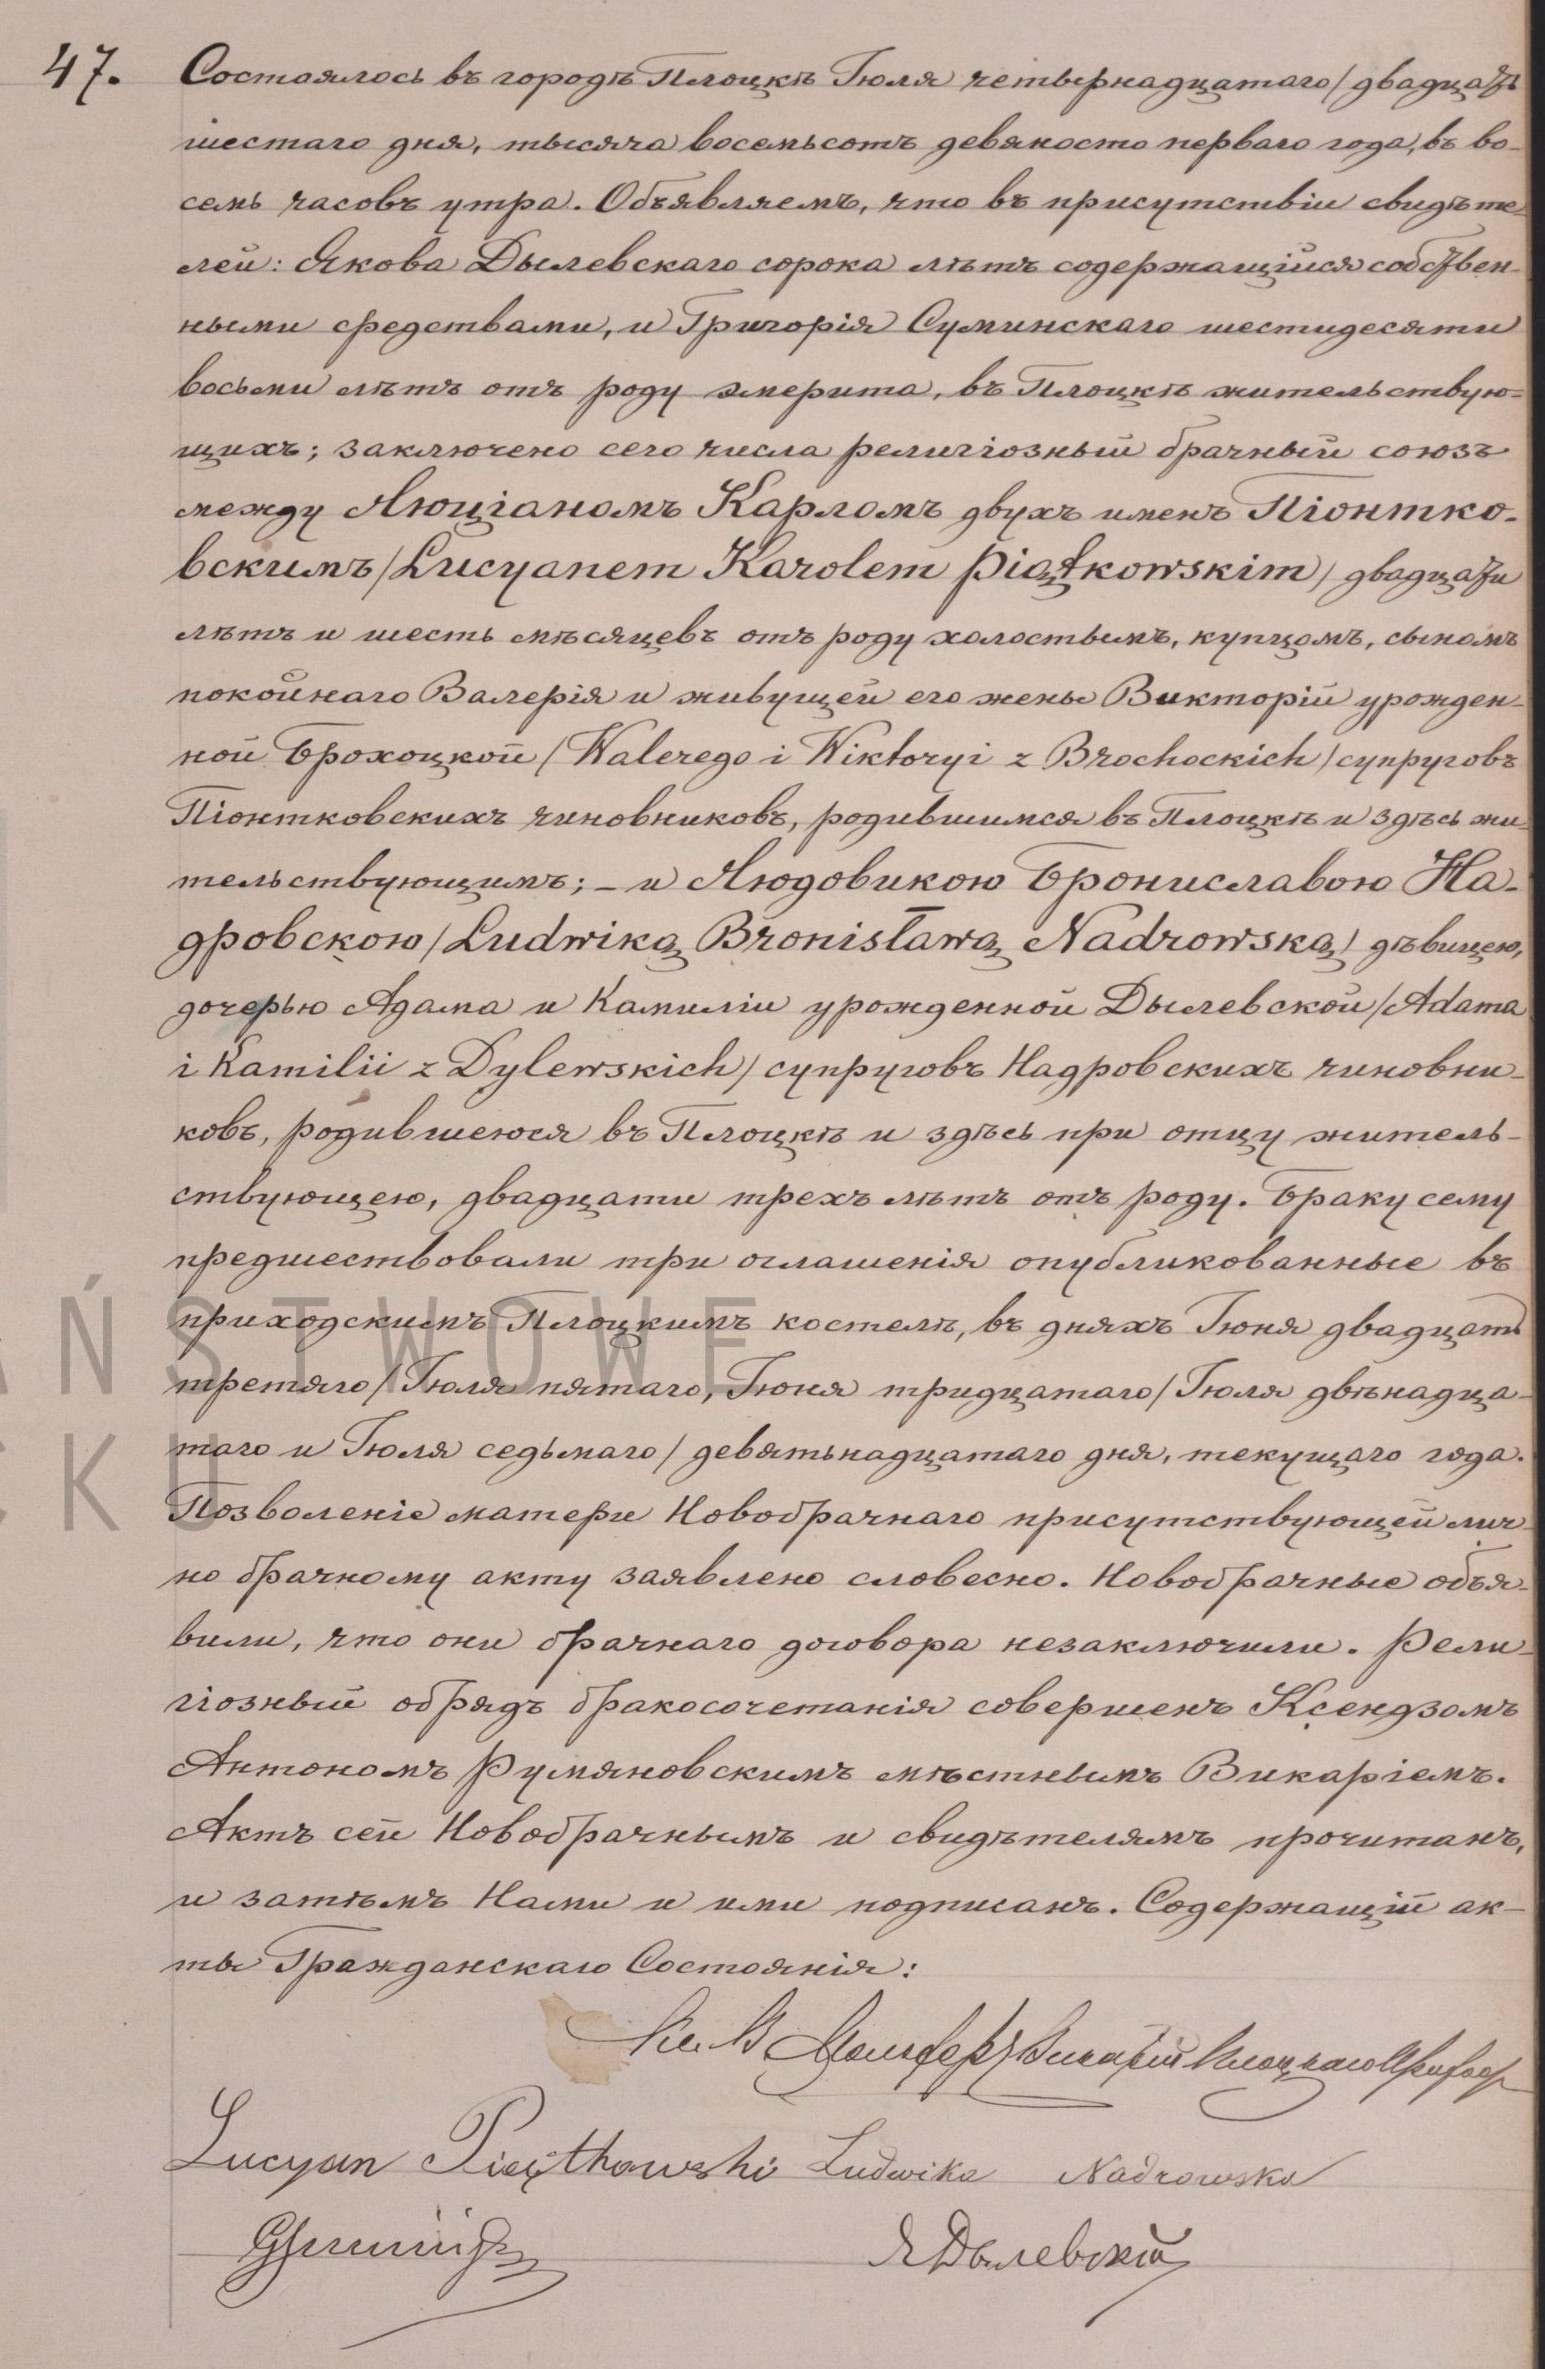 47. Состоялось въ городѣ Плоцкѣ Іюля четырнадцатаго/двадцать
шестаго дня, тысяча восемьсотъ девяносто перваго года, въ во-
семь часовъ утра. Объявляемъ, что въ присутствіи свидѣте-
лей: Якова Дылевскаго сорока лѣтъ содержащійся собствен-
ными средствами, и Григорія Суминскаго шестидесяти
восьми лѣтъ отъ роду эмерита, въ Плоцкѣ жительствую-
щихъ; заключено сего числа религіозный брачный союзъ
между Люціаномъ Карломъ двухъ именъ Піонтко-
вскимъ/Lucyanem Karolem Piątkowskim/ двадцати
лѣтъ и шесть мѣсяцевъ отъ роду холостымъ, купцомъ, сыномъ
покойнаго Валерія и живущей его жены Викторіи урожден-
ной Брохоцкой/Walerego i Wiktoryi z Brochockich/супруговъ
Піонтковскихъ чиновниковъ, родившимся въ Плоцкѣ и здѣсь жи-
тельствующимъ; – и Людовикою Брониславою На-
дровскою/Ludwiką Bronisławą Nadrowską/ дѣвицею,
дочерью Адама и Камиліи урожденной Дылевской/Adama
i Kamilii z Dylewskich/ супруговъ Надровскихъ чиновни-
ковъ, родившеюся въ Плоцкѣ и здѣсь при отцу житель-
ствующею, двадцати трехъ лѣтъ отъ роду. Браку сему
предшествовали три оглашенія опубликованные въ
приходскимъ Плоцкимъ костелѣ, въ дняхъ Іюня двадцать
третяго/Іюля пятаго, Іюня тридцатаго/Іюля двѣнадца-
таго и Іюля седьмаго/девятьнадцатаго дня, текущаго года.
Позволеніе матери Новобрачнаго присутствующей лич-
но брачному акту заявлено словесно. Новобрачные объя-
вили, что они брачнаго договора незаключили. Рели-
гіозный обрядъ бракосочетанія совершенъ Ксендзомъ
Антономъ Румяновскимъ мѣстнымъ Викаріемъ.
Актъ сей Новобрачнымъ и свидѣтелямъ прочитанъ,
и затѣмъ Нами и ими подписанъ. Содержащій ак-
ты Гражданскаго Состоянія:
Викарій Плоцкаго
Lucyan Piątkowski Ludwika Nadrowska
ЯДылевскій
ŃSTWOWE
CKU